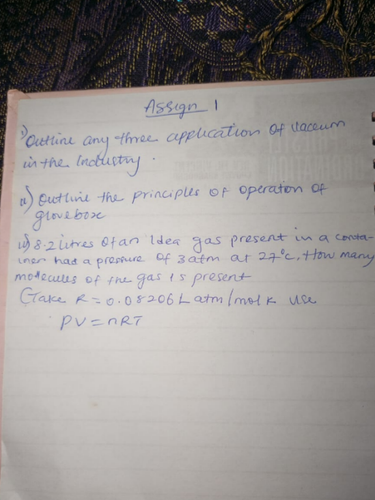 Assign 1
i) Outline any three application of Vaceum
in the Industry.
ii) Outline the principles of operation of
glovebox
iii) 8.2 litres of an Idea gas present in a conta-
iner had a pressure of 3 atm at 27°c, How many
molecules of the gas is present
(Take R = 0.08206 L atm/mol k Use
PV = nRT